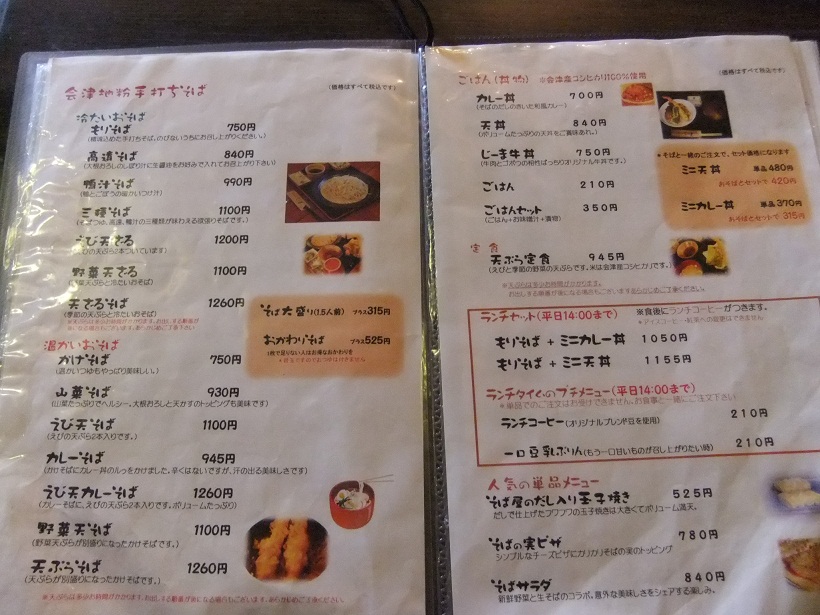 会津地粉手打ちそば
(価格はすべて税込です)
冷たいおそば
もりそば 750円
高遠そば 840円
(大根おろしのしぼり汁に生醤油をお好みで入れてお召上がり下さい)
鴨汁そば 990円
(鴨とごぼうの温かいつけ汁)
三種そば 1100円
えび天ざる 1200円
(えびの天ぷら2本ついています)
野菜天ざる 1100円
(野菜天ぷらと冷たいおそば)
天ざるそば 1260円
(季節の天ぷらと冷たいおそば)
そば大盛り(1.5人前) プラス315円
おかわりそば プラス525円
1枚で足りない人はお得なおかわりを
温かいおそば
かけそば 750円
(温かいつゆもやっぱり美味しい。)
山菜そば 930円
(山菜たっぷりでヘルシー。大根おろしと天かすのトッピングも美味です)
えび天そば 1100円
(えびの天ぷら2本入りです。)
カレーそば 945円
(かけそばにカレー丼のルゥをかけました。辛くはないですが、汗の出る美味しさです)
えび天カレーそば 1260円
(カレーそばに、えびの天ぷら2本入りです。ボリュームたっぷり)
野菜天そば 1100円
(野菜天ぷらが別盛りになったかけそばです。)
天ぷらそば 1260円
(天ぷらが別盛りになったかけそばです。)
ごはん(丼物) ※会津産コシヒカリ100%使用
(価格はすべて税込です)
カレー丼 700円
(そばのだしのきいた和風カレー)
天丼 840円
(ボリュームたっぷりの天丼をご賞味あれ。)
じーま牛丼 750円
(牛肉とゴボウの相性ばっちりオリジナル牛丼です。)
ごはん 210円
ごはんセット 350円
(ごはん+お味噌汁+漬物)
*そばと一緒のご注文で、セット価格になります
ミニ天丼 単品480円
おそばとセットで 420円
ミニカレー丼 単品370円
おそばとセットで 315円
定食
天ぷら定食 945円
(えびと季節の野菜の天ぷらです。米は会津産コシヒカリです。)
※天ぷらは多少お時間がかかります。
お出しする順番が後になる場合もございますあらかじめご了承ください。
ランチセット(平日14:00まで) ※食後にランチコーヒーがつきます。
もりそば + ミニカレー丼 1050円
もりそば + ミニ天丼 1155円
ランチタイムのプチメニュー(平日14:00まで)
※単品でのご注文はお受けできません。お食事と一緒にご注文下さい
ランチコーヒー(オリジナルブレンド豆を使用) 210円
一口豆乳ぷりん(もう一口甘いものが召し上がりたい時) 210円
人気の単品メニュー
そば屋のだし入り玉子焼き 525円
だしで仕上げたフワフワの玉子焼きは大きくてボリューム満天。
そばの実ピザ 780円
シンプルなチーズピザにカリカリそばの実のトッピング
そばサラダ 840円
新鮮野菜と生そばのコラボ。意外な美味しさをシェアする楽しみ。